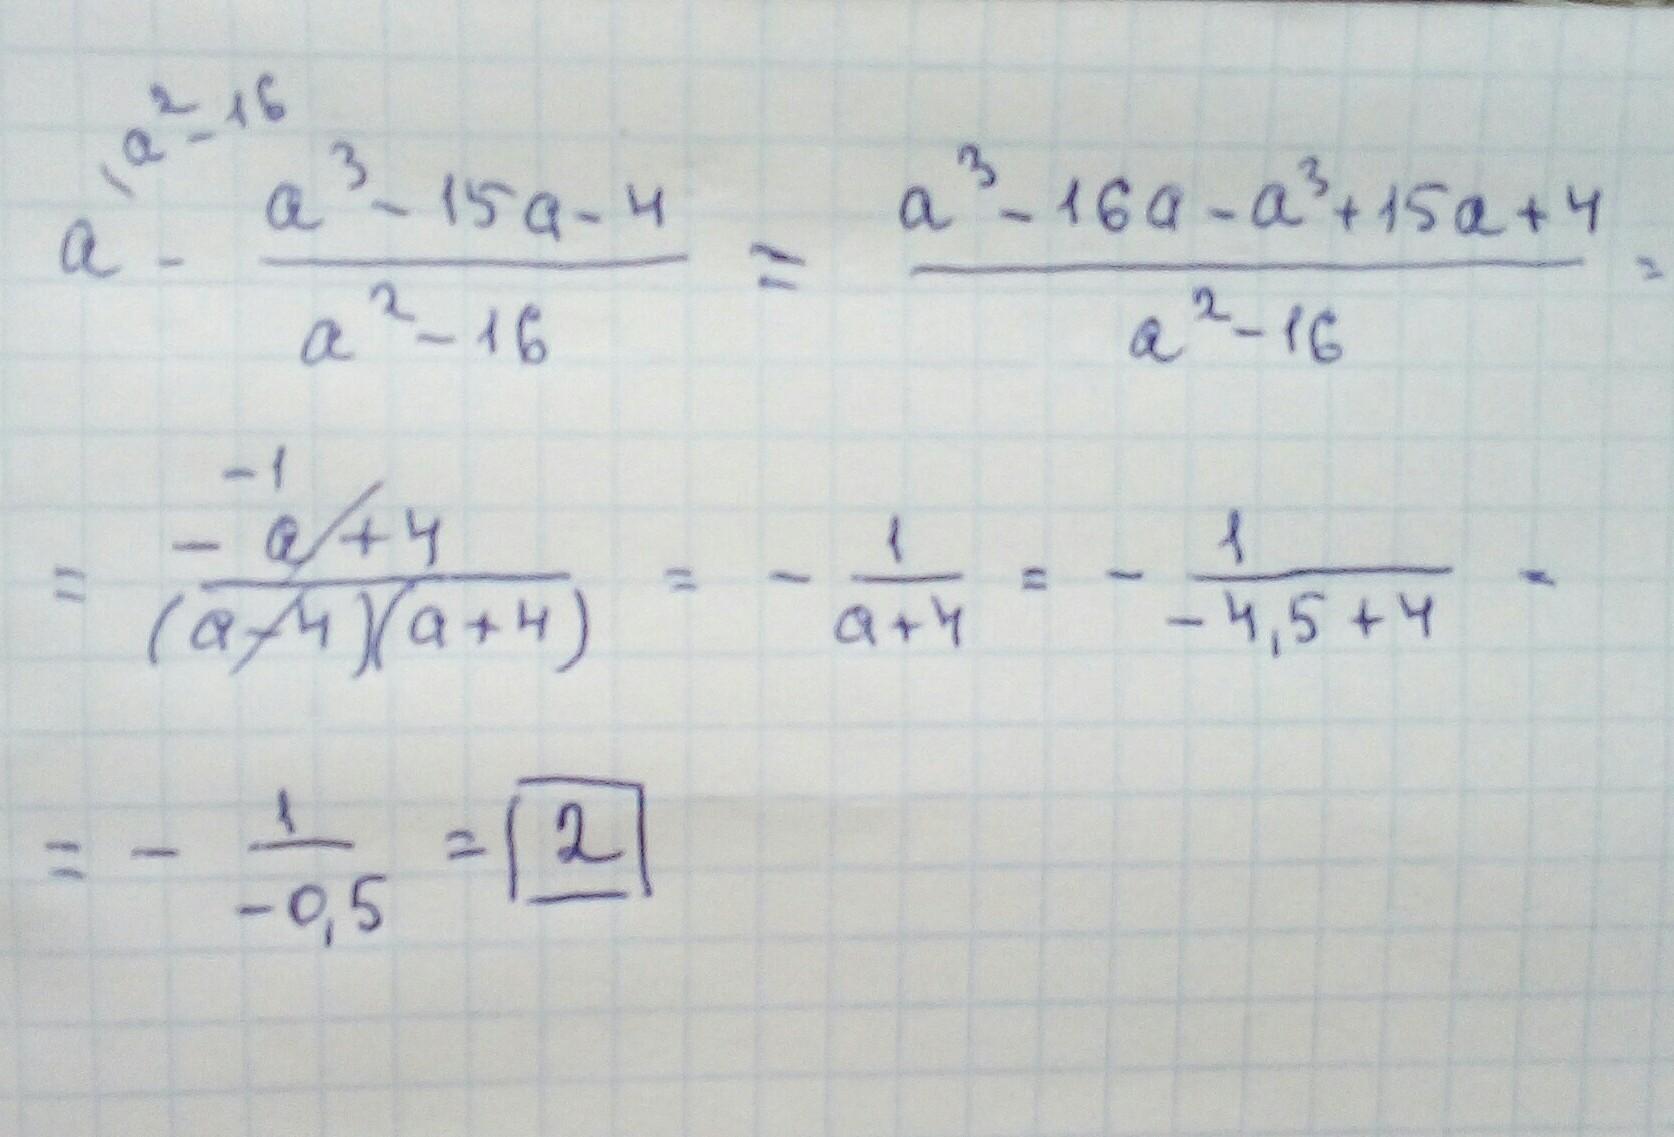 a^{\ a² - 16} - \frac{a³ - 15a - 4}{a² - 16} = \frac{a³ - 16a - a³ + 15a + 4}{a² - 16} =
= \frac{-a + 4}{(a - 4)(a + 4)}^{-1} = - \frac{1}{a + 4} = - \frac{1}{-4,5 + 4} -
= - \frac{1}{-0,5} = 2